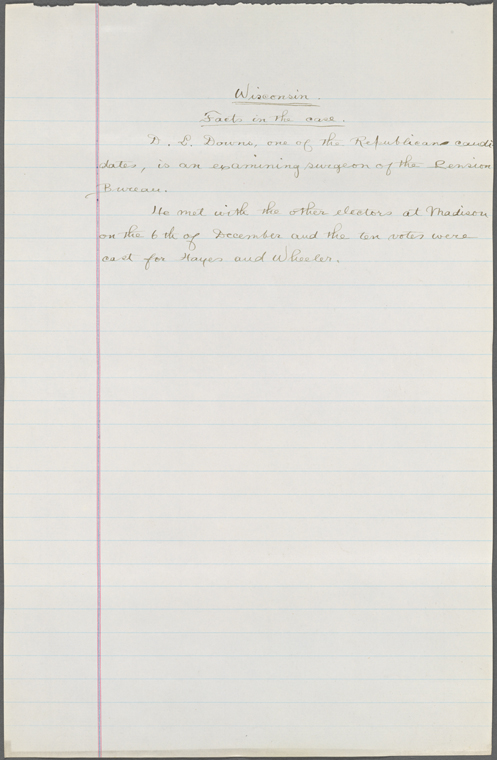 Wisconsin.
Facts in the case.
D. L. Downs, one of the Republican candi
dates, is an examining surgeon of the Pension
Bureau.
He met with the other electors at Madison
on the 6th of December and the ten votes were
cast for Hayes and Wheeler.